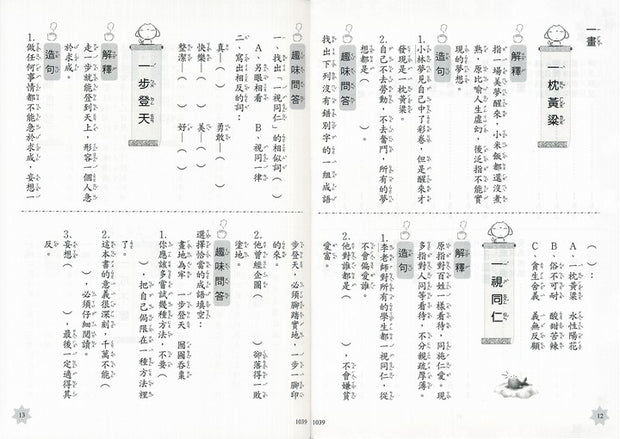 一畫
一枕黃粱
解釋
指一場美夢醒來，小米飯都還沒煮
熟，原比喻人生虛幻，後泛指不能實
現的夢想。
造句
1.小林夢見自己中了彩卷，但是醒來才
發現是一枕黃粱。
2.自己不去勞動，不去奮鬥，所有的夢
想都是（　）。
趣味問答
找出下列沒有錯別字的一組成語
（　）：
A、一枕黃粱　水性陽花
B、俗不可耐　酸甜苦辣
C、貪生舍義　義無反顧
一視同仁
解釋
原指對百姓一樣看待，同施仁愛。現
多指對人同等看待，不分親疏厚薄。
造句
1.李老師對所有的學生都一視同仁，從
不會偏愛誰。
2.他對誰都是（　），不會嫌貧
愛富。
12
1039
趣味問答
一、找出「一視同仁」的相似詞（　）
A、另眼相看　B、視同一律
二、寫出相反的詞：
真—（　）　勇敢—（　）
快樂—（　）　美—（　）
整潔—（　）　好—（　）
一步登天
解釋
走一步就能登到天上，形容一個人急
於求成。
造句
1.做任何事情都不能急於求成，妄想一
步登天，必須腳踏實地，一步一腳印
的來。
2.他曾經企圖（　），卻落得一敗
塗地。
趣味問答
選擇恰當的成語填空：
畫地為牢　一步登天　囫圇吞棗
1.你應該多嘗試幾種方法，不要（
　），把自己侷限在一種方法裡
了。
2.這本書的意義很深刻，千萬不能（
　），必須仔細閱讀。
3.妄想（　），最後一定適得其
反。
13
1039